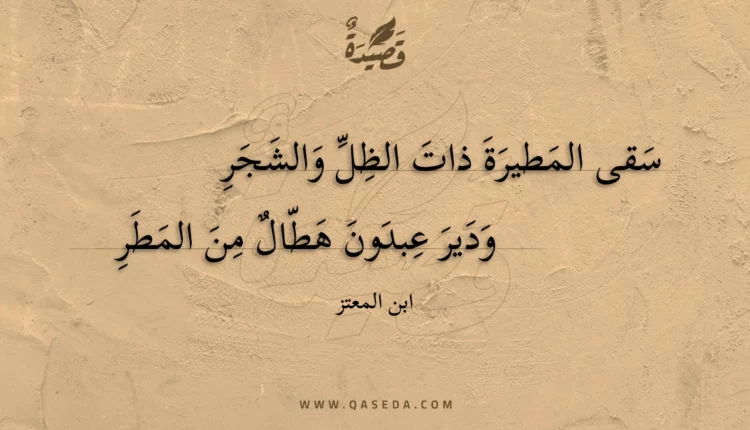 قَصِيْدَةٌ
سَقى المَطيرَةَ ذاتَ الظِلِّ وَالشَجَرِ
وَدَيرَ عِبدَونَ هَطّالٌ مِنَ المَطَرِ
ابن المعتز
WWW.QASEDA.COM